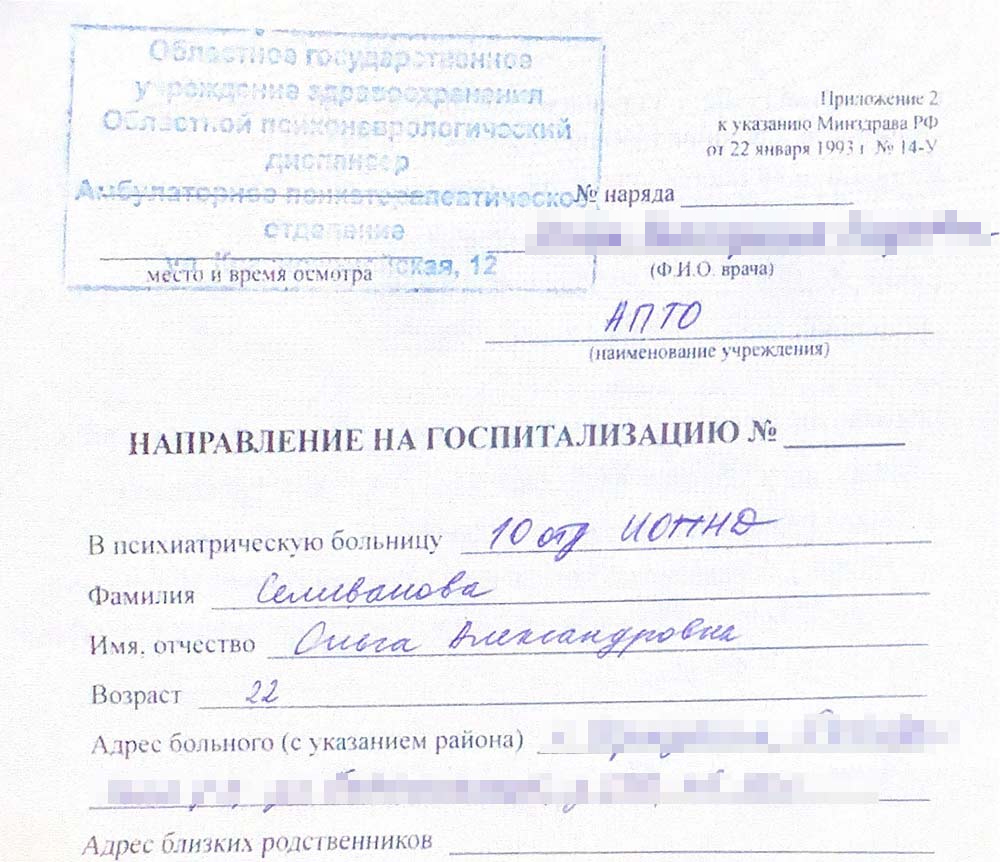 Областное государственное
учреждение здравоохранения
Областной психоневрологический
диспансер
Амбулаторное психотерапевтическое
отделение
ская, 12
место и время осмотра
Приложение 2
к указанию Минздрава РФ
от 22 января 1993 г № 14-У
№ наряда
(Ф.И.О. врача)
АПТО
(наименование учреждения)
НАПРАВЛЕНИЕ НА ГОСПИТАЛИЗАЦИЮ №
В психиатрическую больницу 10 отд ИОПНД
Фамилия Селиванова
Имя, отчество Ольга Александровна
Возраст 22
Адрес больного (с указанием района)
Адрес близких родственников